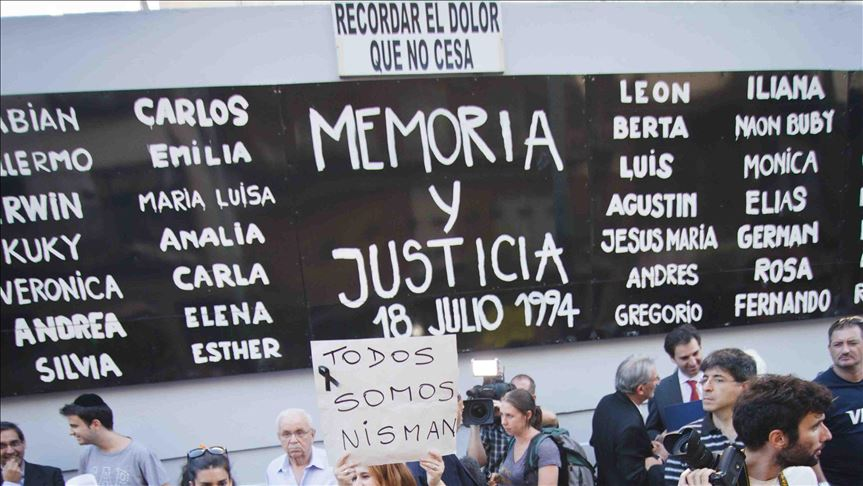 RECORDAR EL DOLOR
QUE NO CESA
CARLOS
EMILIA
MARIA LUISA
ANALIA
CARLA
ELENA
ESTHER
KUKY
VERONICA
ANDREA
SILVIA
MEMORIA
Y
JUSTICIA
18 JULIO 1994
LEON
BERTA
LUIS
AGUSTIN
JESUS MARIA
ANDRES
GREGORIO
ILIANA
NAON BUBY
MONICA
ELIAS
GERMAN
ROSA
FERNANDO
TODOS
SOMOS
NISMAN